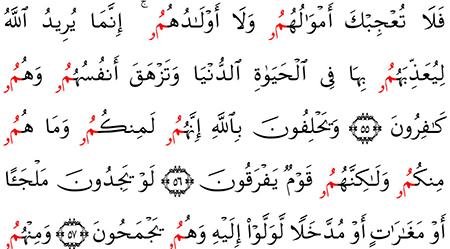 فَلَا تُعْجِبْكَ أَمْوَٰلُهُمُۥ وَلَآ أَوْلَٰدُهُمُۥٓ ۚ إِنَّمَا يُرِيدُ ٱللَّهُ
لِيُعَذِّبَهُمُۥ بِهَا فِى ٱلْحَيَوٰةِ ٱلدُّنْيَا وَتَزْهَقَ أَنفُسُهُمُۥ وَهُمُۥ
كَٰفِرُونَ ٥٥ وَيَحْلِفُونَ بِٱللَّهِ إِنَّهُمُۥ لَمِنكُمُۥ وَمَا هُمُۥ
مِنكُمُۥ وَلَٰكِنَّهُمُۥ قَوْمٌ يَفْرَقُونَ ٥٦ لَوْ يَجِدُونَ مَلْجَـًٔا
أَوْ مَغَٰرَٰتٍ أَوْ مُدَّخَلًا لَّوَلَّوْا۟ إِلَيْهِ وَهُمُۥ يَجْمَحُونَ ٥٧ وَمِنْهُمُۥ